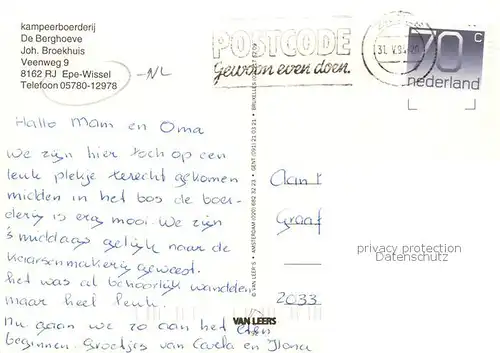 kampeerboerderij
De Berghoeve
Joh. Broekhuis
Veenweg 9
8162 RJ Epe-Wissel
Telefoon 05780-12978
-NL
POSTCODE
Gewoon even doen.
31. V.9
70 c
nederland
Hallo Mam en Oma
We zijn hier toch op een
leuk plekje terecht gekomen
midden in het bos de boer-
derij is erg mooi. We zijn
's middags gelijk naar de
kaarsenmakerij geweest.
het was al behoorlijk wandelen
maar heel leuk.
Nu gaan we zo aan het eten
beginnen. Groetjes van Carla en Ilona
Aan
Graaf
2033
privacy protection
Datenschutz
© VAN LEER'S • AMSTERDAM (020) 692 32 23 • GENT (091) 21 03 21 • BRUXELLES
VAN LEERS